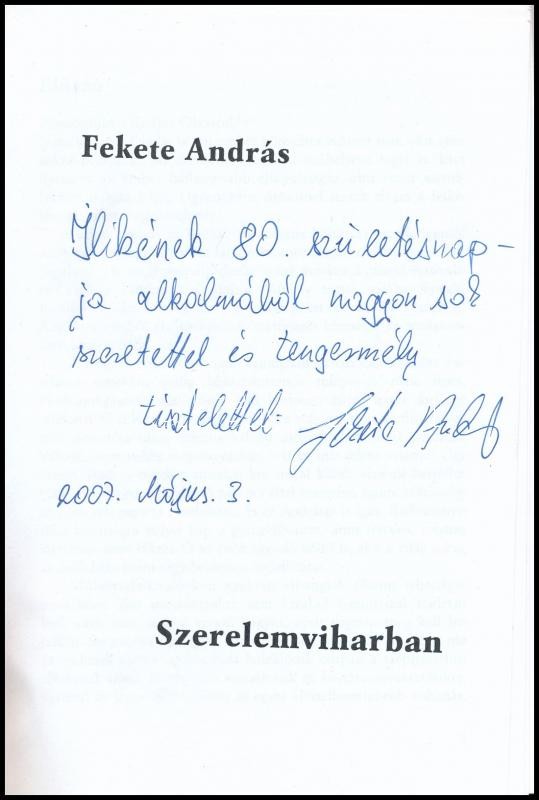 Fekete András
Ilikének 80. születésnap-
ja alkalmából nagyon sok
szeretettel és tengermély
tisztelettel: Fekete András
2007. Május. 3.
Szerelemviharban